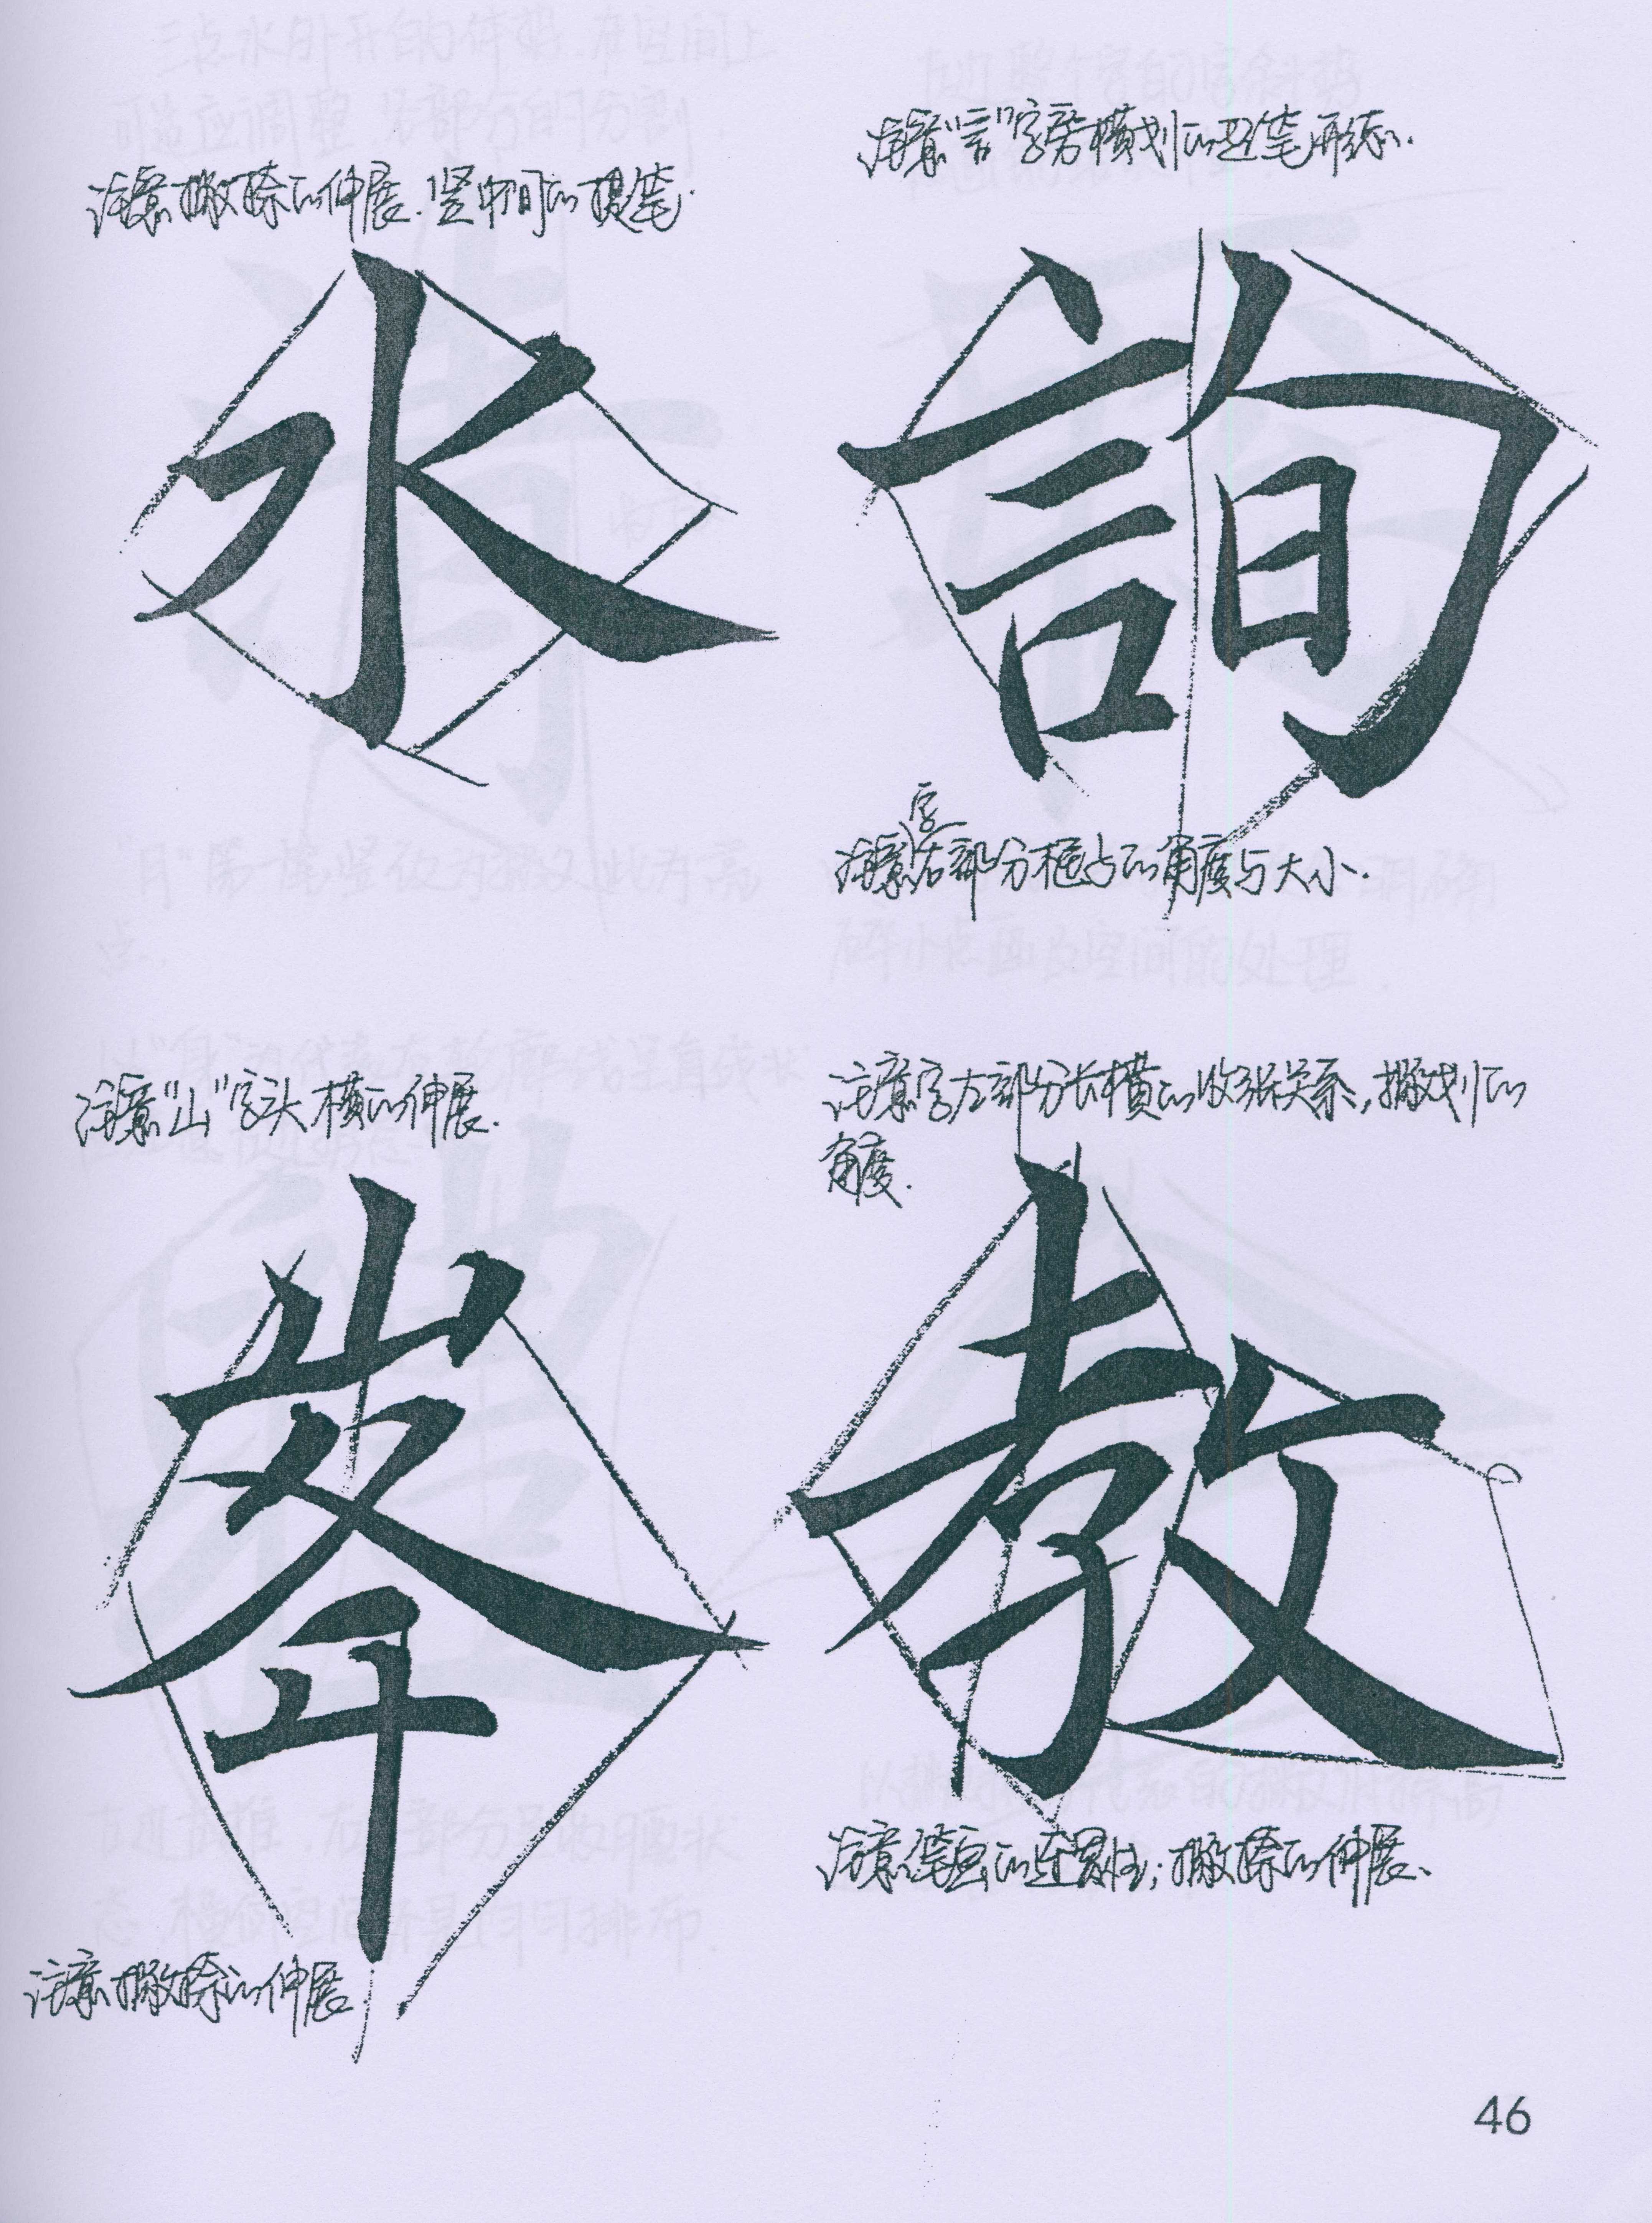 注意撇捺的伸展.竖中间的提笔.
水
注意"言"字旁横划的起笔形态.
詢
字
注意右部分框占的角度与大小.
注意"山"字头横的伸展.
峯
注意撇捺的伸展.
注意字左部分长横的收张关系,撇划的
角度.
教
注意笔画的连贯性;撇捺的伸展.
46